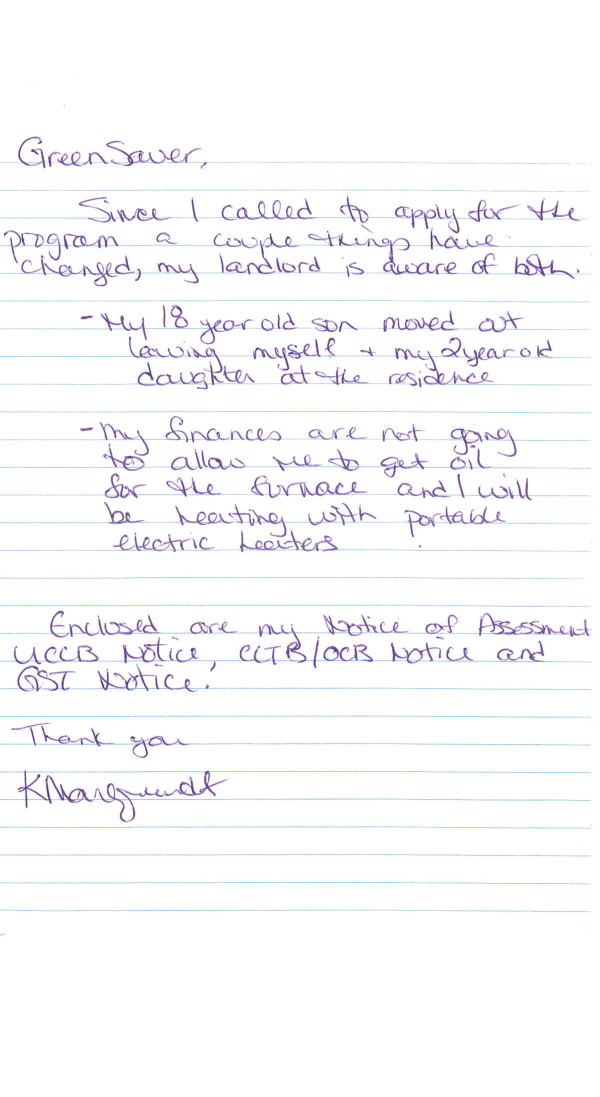 GreenSaver,
Since I called to apply for the
program a couple things have
changed, my landlord is aware of both.
- My 18 year old son moved out
leaving myself + my 2 year old
daughter at the residence
- My finances are not going
to allow me to get oil
for the furnace and I will
be heating with portable
electric heaters
Enclosed are my Notice of Assessment
UCCB Notice, CCTB/OCB Notice and
GST Notice.
Thank you